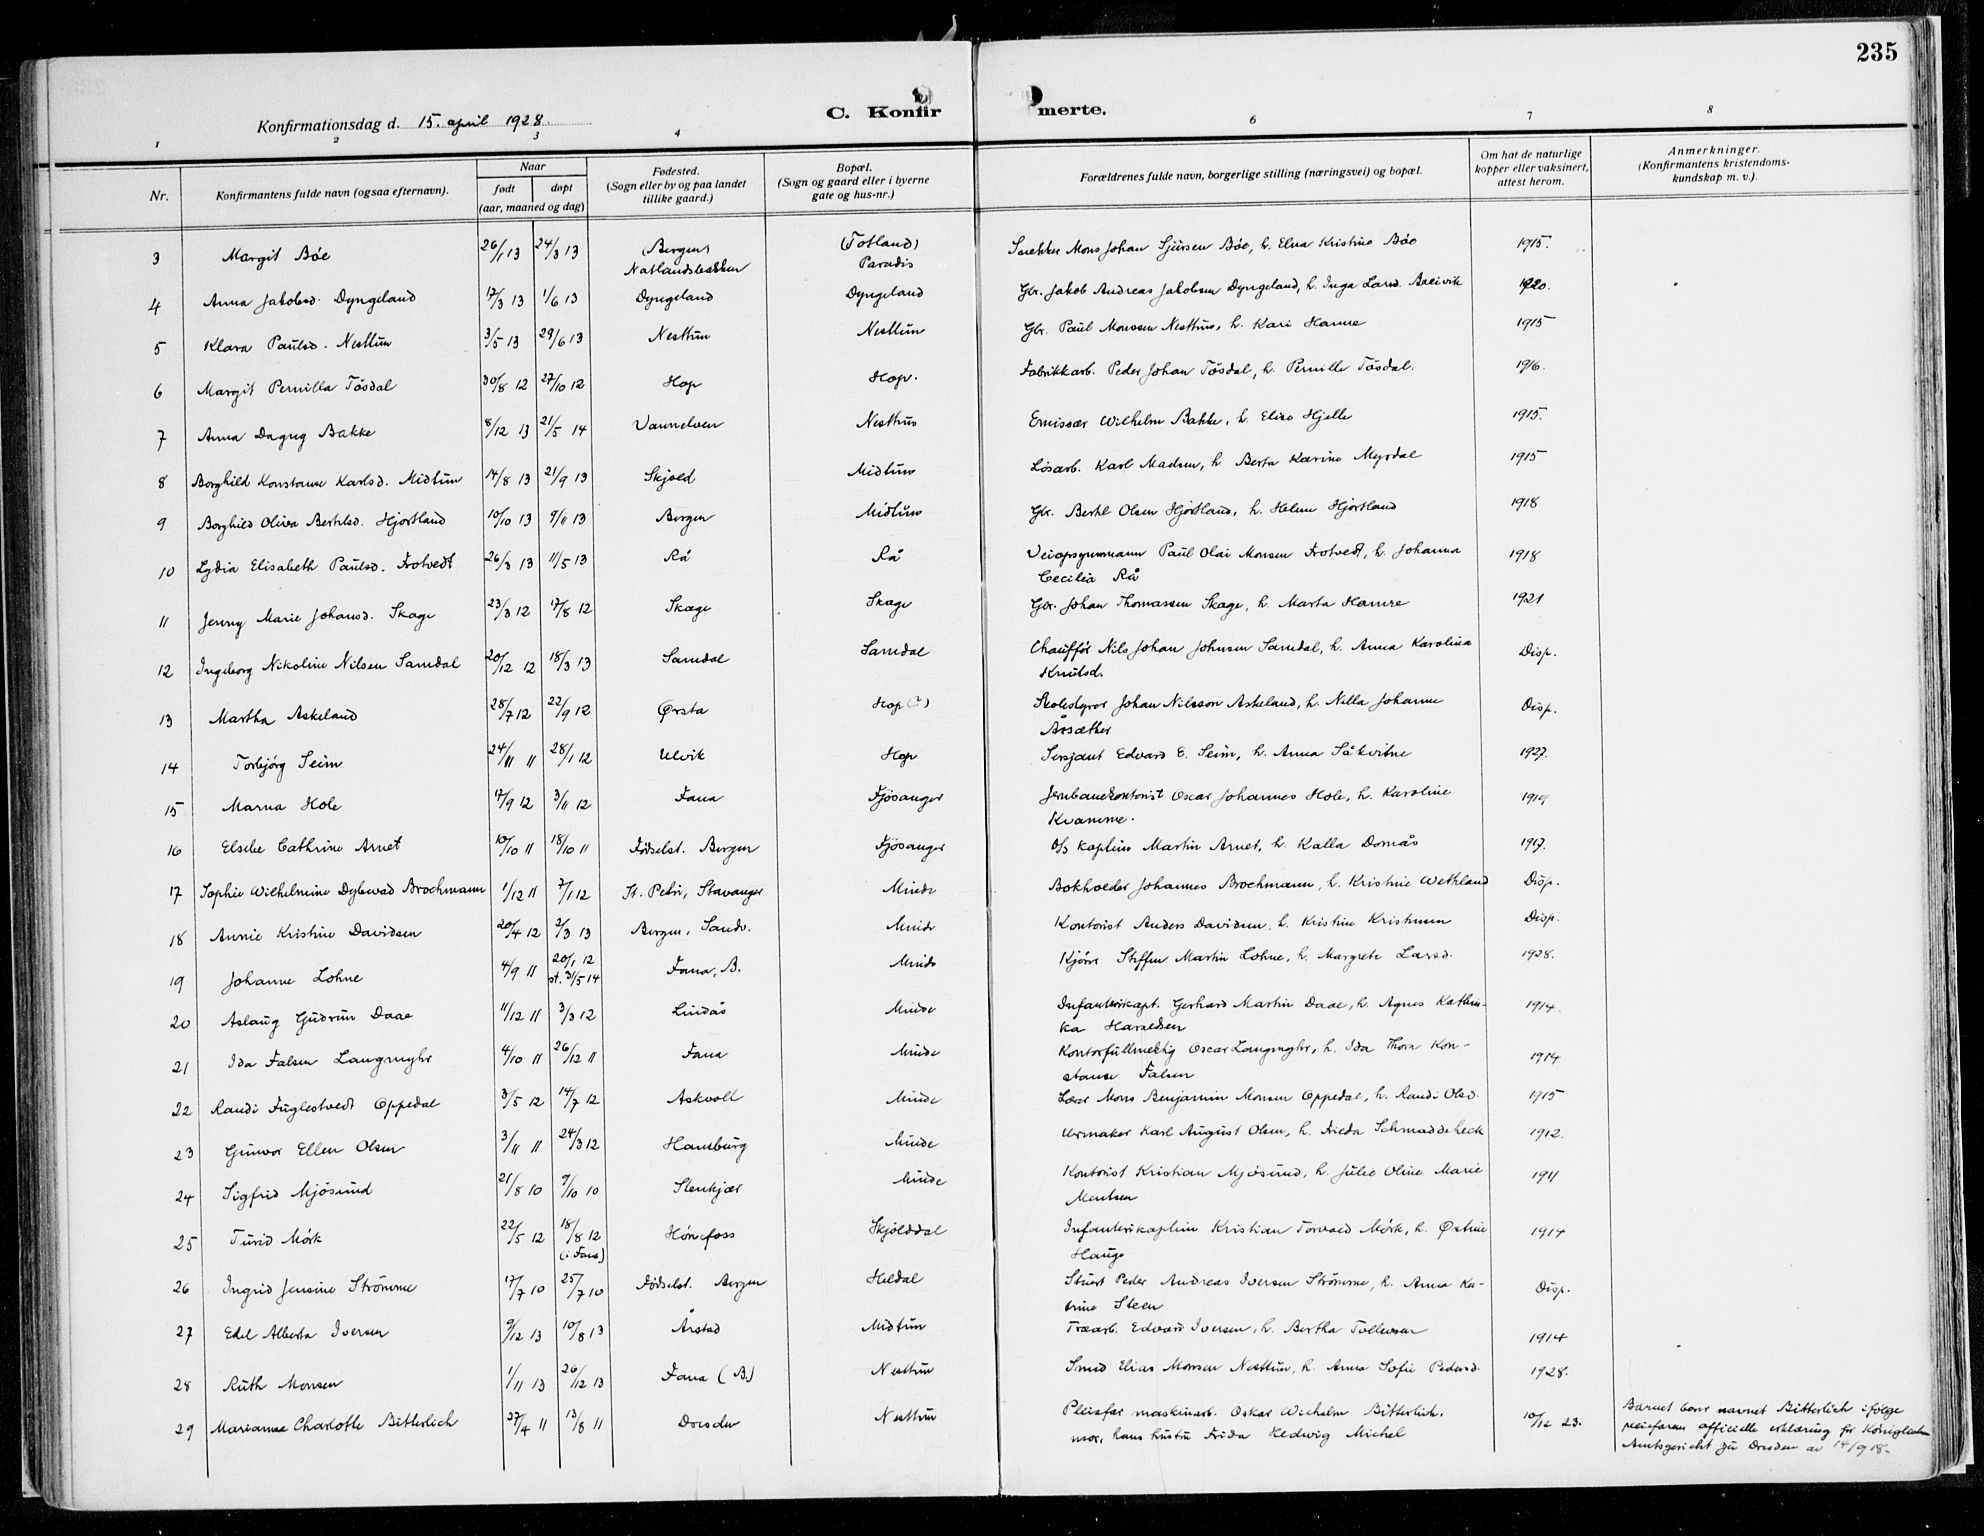 235
C. Konfirmerte.
Konfirmationsdag d. 15. april 1928.
1 2 3 4 6 7 8
Nr. Konfirmantens fulde navn (ogsaa efternavn). Naar født døpt (aar, maaned og dag) Fødested. (Sogn eller by og paa landet tillike gaard.) Bopæl. (Sogn og gaard eller i byerne gate og hus-nr.) Forældrenes fulde navn, borgerlige stilling (næringsvei) og bopæl. Om hat de naturlige kopper eller vaksinert, attest herom. Anmerkninger. (Konfirmantens kristendoms-kundskap m. v.).
3 Margit Bøe 26/1 13 24/3 13 (Bergen) Natlandsbakken (Totland) Paradis Snekker Mons Johan Sjursen Bøe, h. Elna Kristine Bøe 1915.
4 Anna Jakobsd. Dyngeland 17/3 13 1/6 13 Dyngeland Dyngeland Gbr. Jakob Andreas Jakobsen Dyngeland, h. Inga Larsd. 1920.
5 Klara Paulsd. Nesttun 3/5 13 29/6 13 Nesttun Nesttun Gbr. Paul Monssen Nesttun, h. Kari Hamre 1915
6 Margit Pernilla Tösdal 30/8 12 27/10 12 Hop Hop. Fabrikkarb. Peder Johan Tösdal, h. Pernille Tösdal. 1916.
7 Anna Dagny Bakke 8/12 13 21/5 14 Vannelven Nesttun Emissær Wilhelm Bakke, h. Elise Hjelle 1915.
8 Borghild Konstanse Karlsd. Midtun 14/8 13 21/9 13 Skjold Midtun Lösarb. Karl Madsen, h. Berta Karine Myrdal 1915
9 Borghild Olivia Bertilsd. Hjortland 10/10 13 9/11 13 Bergen Midtun Gbr. Bertil Olsen Hjortland, h. Helene Hjortland 1918
10 Lydia Elisabeth Paulsd. Trotvedt 26/3 13 11/5 13 Rå Rå Veiopsynsmann Paul Olai Monsen Trotvedt, h. Johanna
Cecilia Rå 1918
11 Jenny Marie Johansd. Skage 23/3 12 17/8 12 Skage Skage Gbr. Johan Thomassen Skage, h. Marta Hamre 1921
12 Ingeborg Nikoline Nilsen Samdal 20/12 12 18/3 13 Samdal Samdal Chauffør Nils Johan Johnsen Samdal, h. Anna Karolina
Knutsd. Disp.
13 Martha Askeland 28/7 12 22/9 12 Ørsta Hop Skolestyrer Johan Nilsson Askeland, h. Nilla Johanne
Årsæther Disp.
14 Torbjørg Seim 24/11 11 28/1 12 Ulvik Hop Sersjant Edvard E. Seim, h. Anna Såkvitne 1927.
15 Marna Hole 17/9 12 3/11 12 Fana Fjösanger Jernbanekontorist Oscar Johannes Hole, h. Karoline
Kvamme. 1919
16 Elsebe Cathrine Arnet 10/10 11 18/10 11 Födselst. Bergen Fjösanger D/S kaptein Martin Arnet, h. Kalla Domås 1917.
17 Sophie Wilhelmine Dybwad Brochmann 1/12 11 7/1 12 St. Petri, Stavanger Minde Bokholder Johannes Brochmann, h. Kristine Wethland Disp.
18 Annie Kristine Davidsen 20/4 12 2/3 13 Bergen, Sandv. Minde Kontorist Anders Davidsen, h. Kristine Kristensen Disp.
19 Johanne Lohne 4/9 11 20/1 12 st. 31/5 14 Fana, B. Minde Kjörer Steffen Martin Lohne, h. Margrete Larsd. 1928.
20 Aslaug Gudrun Daae 11/12 11 3/3 12 Lindås Minde Infanterikapt. Gerhard Martin Daae, h. Agnes Kathin-
ka Haraldsen 1914.
21 Ida Falsen Langmyhr 4/10 11 26/12 11 Fana Minde Kontorfullmektig Oscar Langmyhr, h. Ida Thora Kon-
stanse Falsen 1914
22 Randi Fuglestvedt Oppedal 3/5 12 14/7 12 Askvoll Minde Lærer Mons Benjamin Monsen Oppedal, h. Randi Olsd. 1915
23 Gunvor Ellen Olsen 3/11 11 24/3 12 Hamburg Minde Urmaker Karl August Olsen, h. Frieda Schmaddebeck 1912.
24 Sigfrid Mjösund 21/8 10 9/10 10 Stenkjær Minde Kontorist Kristian Mjösund, h. Julie Oline Marie
Mentsen 1911
25 Turid Mörk 22/5 12 18/8 12 (i Fana) Hönefoss Skjölddal Infanterikaptein Kristian Torvald Mörk, h. Østine
Hauge 1914
26 Ingrid Jensine Strömme 17/7 10 25/7 10 Födselst. Bergen Heldal Stuert Peder Andreas Iversen Strömme, h. Anna Ka-
trine Steen Disp.
27 Edel Alberta Iversen 9/12 13 10/8 13 Årstad Midtun Træarb. Edvard Iversen, h. Bertha Tollevsen 1914
28 Ruth Monsen 1/11 13 26/12 13 Fana (B.) Nesttun Smed Elias Monsen Nesttun, h. Anna Sofie Pedersd. 1928.
29 Marianne Charlotte Bitterlich 27/4 11 13/8 11 Dresden Nesttun Pleiefar maskinarb. Oskar Wilhelm Bitterlich,
mor, hans hustru Frida Hedwig Michel 10/12 23. Barnet bærer navnet Bitterlich ifölge
pleiefarens officielle erklæring for Königlichen
Amtsgericht zu Dresden av 14/9 18.